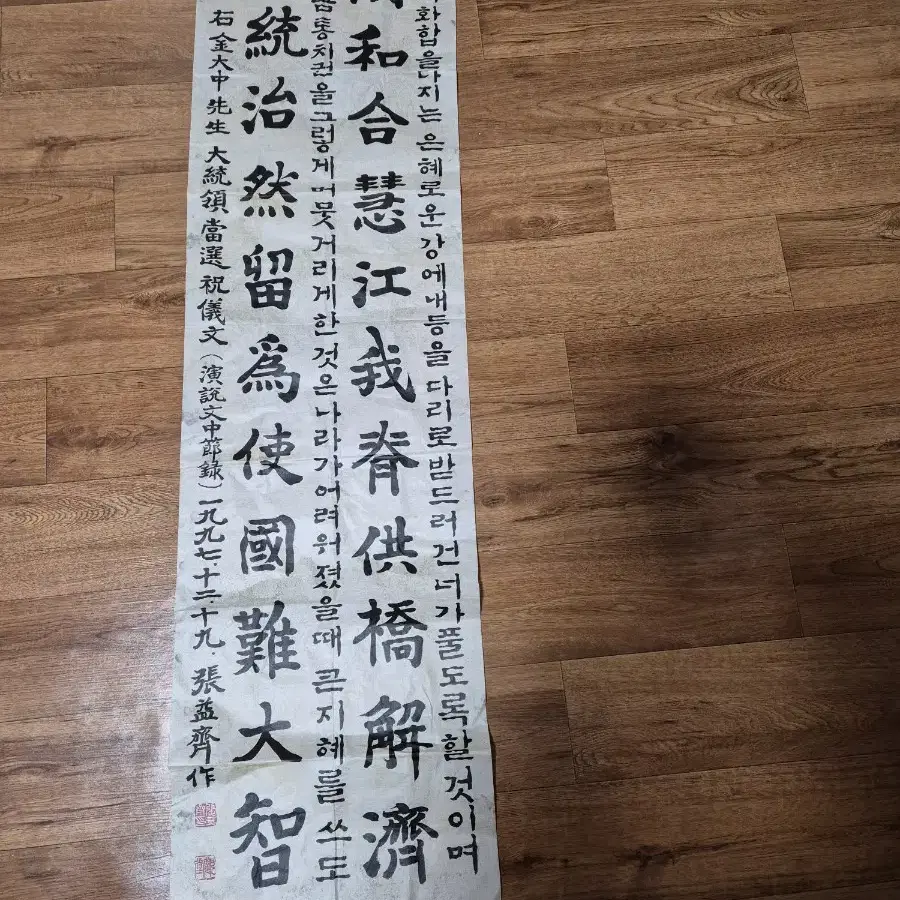 화합을나지는 은혜로운강에내등을다리로받드러건너가풀도록할것이며
和合慧江我脊供橋解濟
통치권을그렇게머뭇거리게한것은나라가어려워졌을때큰지혜를 쓰도
統治然留爲使國難大智
石 金大中 先生 大統領當選祝儀文(演説文中節録)一九九七.十二.十九.張益齊作